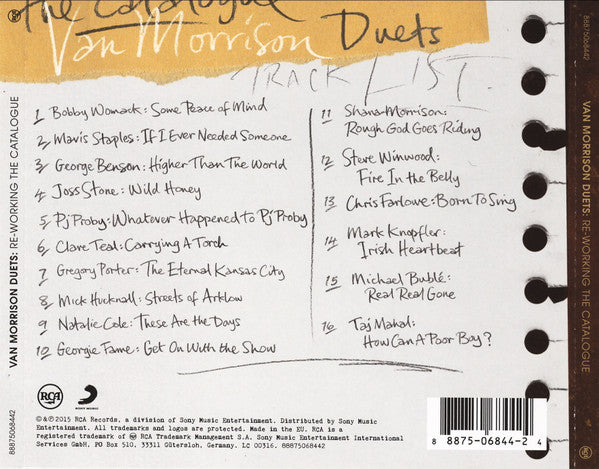 the Catalogue
Van Morrison Duets
TRACK LIST.
1 Bobby Womack: Some Peace of Mind
2 Mavis Staples: If I Ever Needed Someone
3 George Benson: Higher Than The World
4 Joss Stone: Wild Honey
5 Pj Proby: Whatever Happened to Pj Proby
6 Clare Teal: Carrying A Torch
7 Gregory Porter: The Eternal Kansas City
8 Mick Hucknall: Streets of Arklow
9 Natalie Cole: These Are the Days
10 Georgie Fame: Get On With the Show
11 Shana Morrison:
Rough God Goes Riding
12 Steve Winwood:
Fire In the Belly
13 Chris Farlowe: Born To Sing
14 Mark Knopfler:
Irish Heartbeat
15 Michael Bublé:
Real Real Gone
16 Taj Mahal:
How Can A Poor Boy?
RCA
SONY MUSIC
℗&©2015 RCA Records, a division of Sony Music Entertainment. Distributed by Sony Music
Entertainment. All trademarks and logos are protected. Made in the EU. RCA is a
registered trademark of RCA Trademark Management S.A. Sony Music Entertainment International
Services GmbH, PO Box 510, 33311 Gütersloh, Germany. LC 00316. 88875068442
8 88750 68442 4
88875068442
VAN MORRISON DUETS: RE-WORKING THE CATALOGUE
88875068442
VAN MORRISON DUETS: RE-WORKING THE CATALOGUE